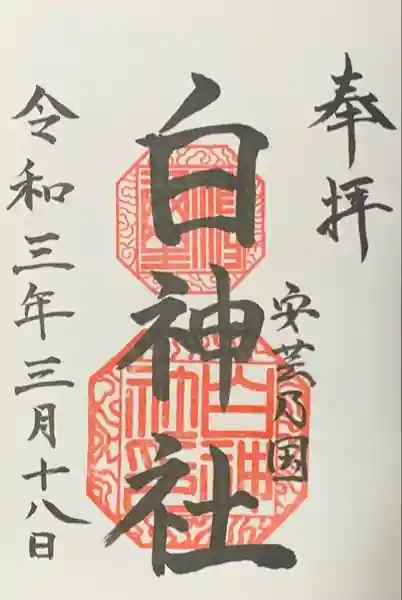 奉拝
安芸乃国
白神社
令和三年三月十八日